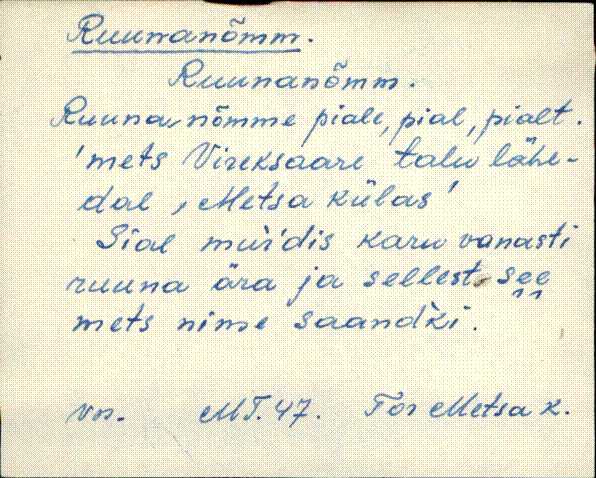 Ruunanõmm.
Ruunanõmm.
Ruuna, nõmme piale, pial, pialt.
'mets Vireksaare talu lähe-
dal, Metsa külas'
Sial mür'dis karu vanasti
ruuna ära ja sellest see
mets nime saandki.
vn. MT. 47. Tor Metsa k.